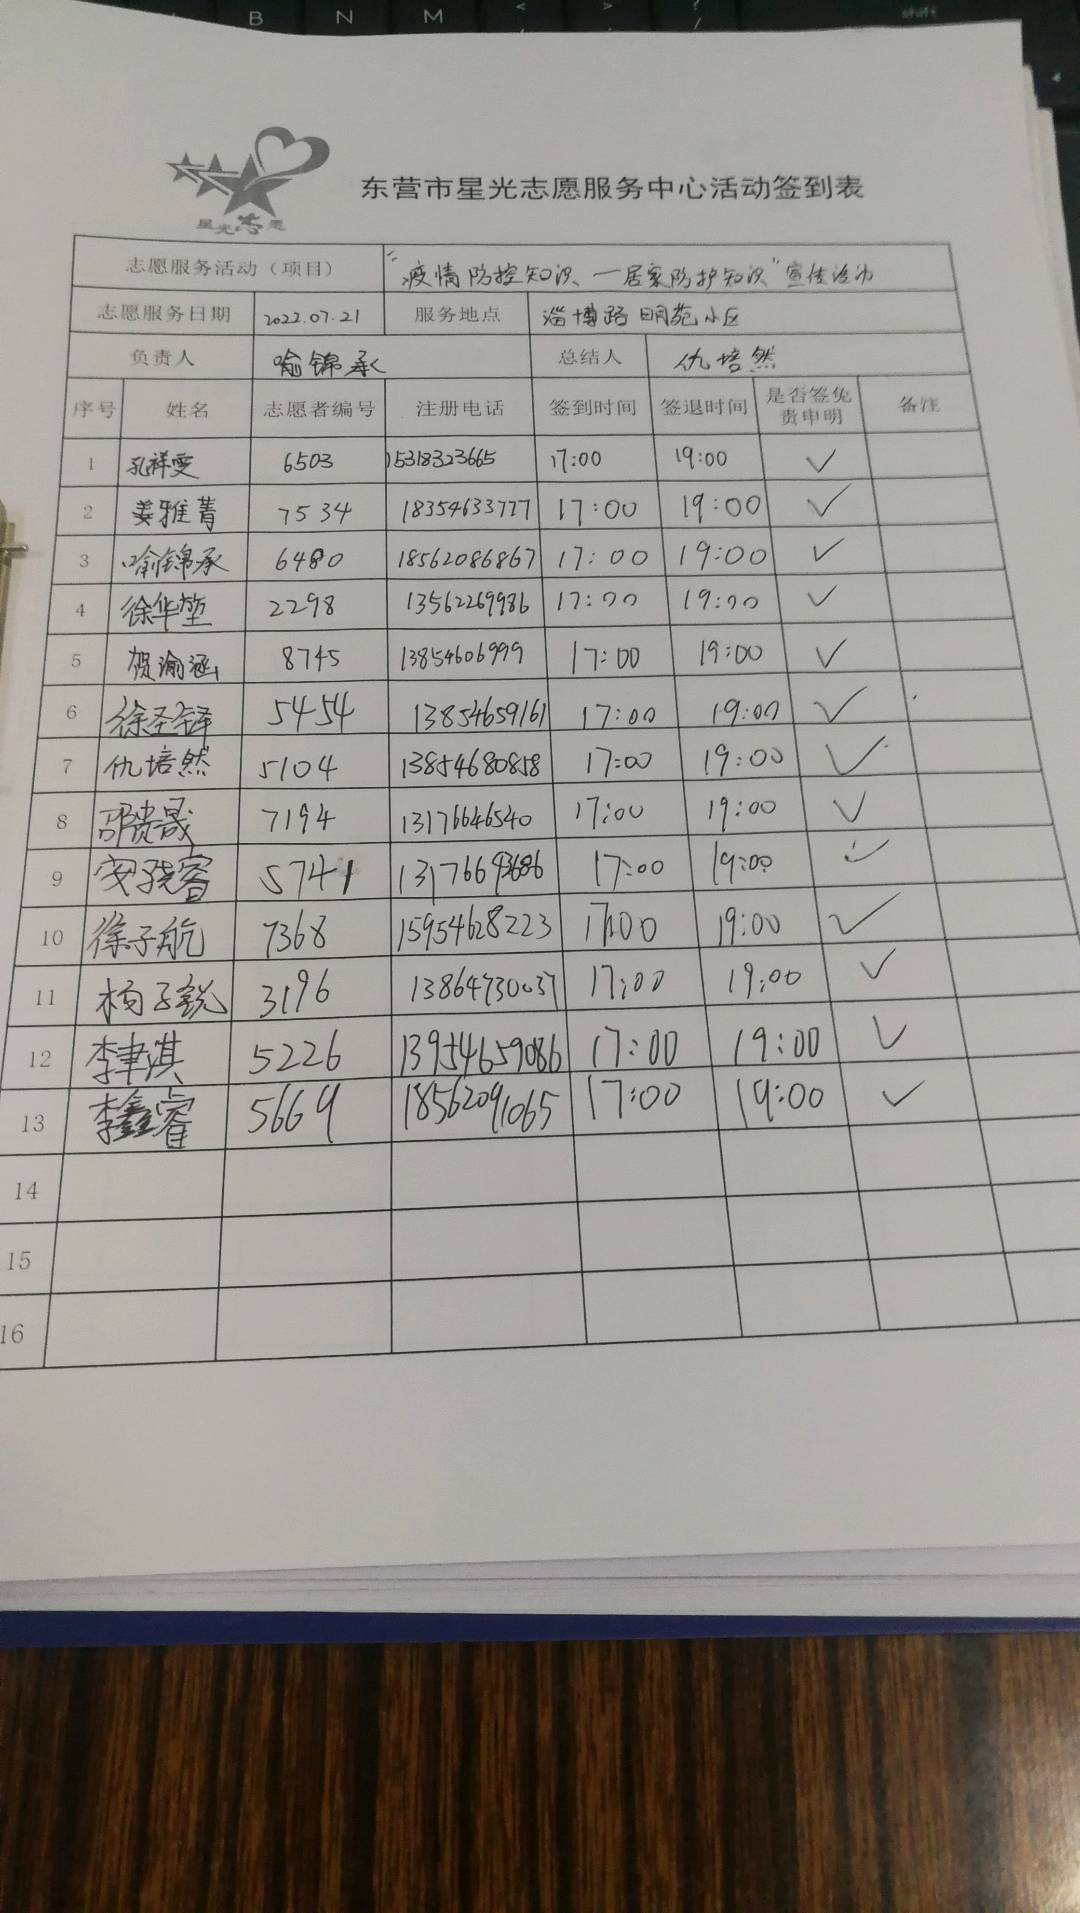 B N M < > ? / shift
星光志愿
东营市星光志愿服务中心活动签到表
志愿服务活动（项目） "疫情防控知识、一居家防护知识"宣传活动
志愿服务日期 2022.07.21 服务地点 淄博路明苑小区
负责人 喻锦承 总结人 仇培然
序号 姓名 志愿者编号 注册电话 签到时间 签退时间 是否签免责申明 备注
1 孔祥雯 6503 15318323665 17:00 19:00 ✓
2 姜雅菁 7534 18354633777 17:00 19:00 ✓
3 喻锦承 6480 18562086867 17:00 19:00 ✓
4 徐华堃 2298 13562269986 17:00 19:00 ✓
5 贺渝涵 8745 13854606999 17:00 19:00 ✓
6 徐圣铎 5454 13854659161 17:00 19:00 ✓
7 仇培然 5104 13854680858 17:00 19:00 ✓
8 邵贵晟 7194 13176646540 17:00 19:00 ✓
9 5741 13176693686 17:00 19:00 ✓
10 徐子航 7368 15954628223 17:00 19:00 ✓
11 杨子锐 3196 13864730037 17:00 19:00 ✓
12 李聿淇 5226 13954659086 17:00 19:00 ✓
13 李鑫睿 5669 18562091065 17:00 19:00 ✓
14
15
16